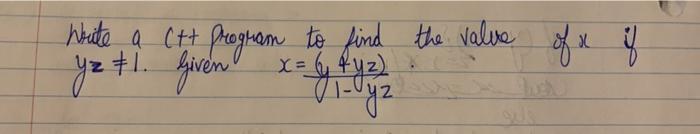 Write a C++ program to find the value of x if
yz ≠ 1. Given x = (y + yz)
1 - yz